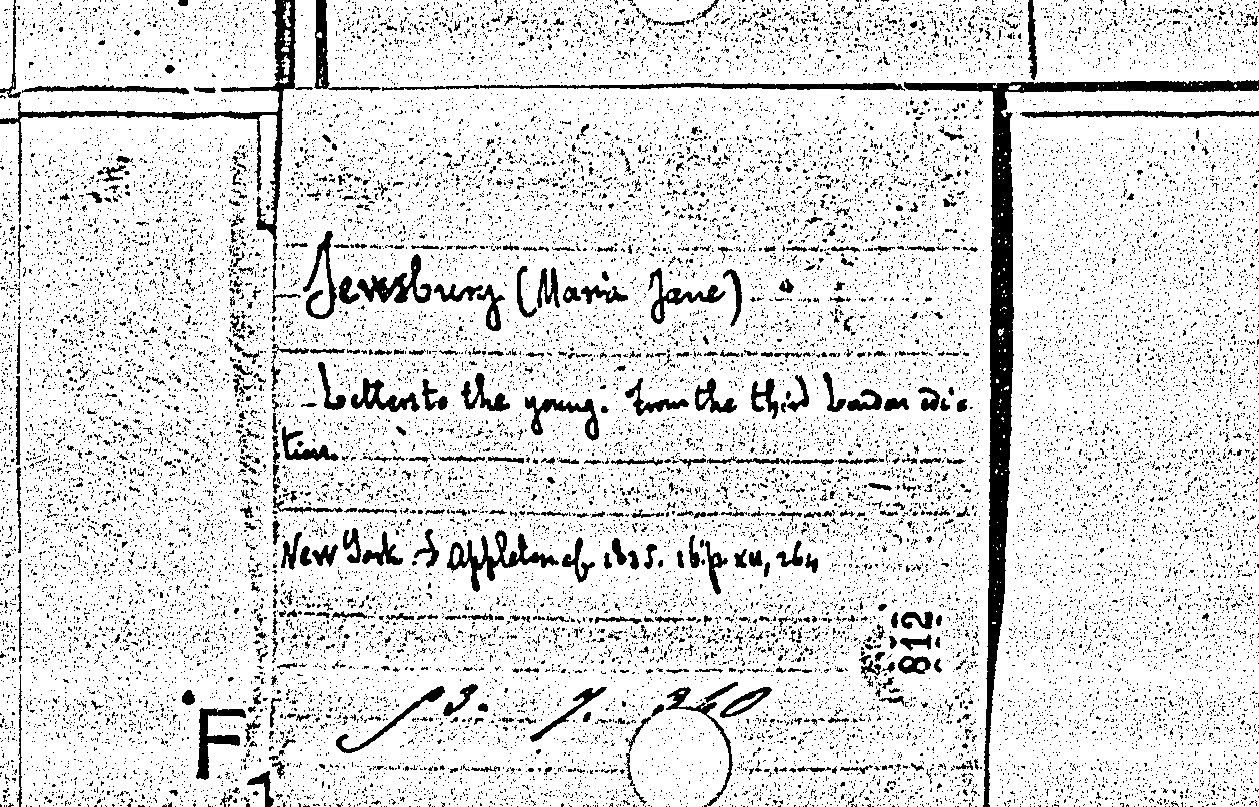 Jewsbury (Maria Jane)
Letters to the young. From the third London edi-
tion.
New York. D Appleton & c° 1835. 16° p. XII, 264
812
3. 7. 360
F
1